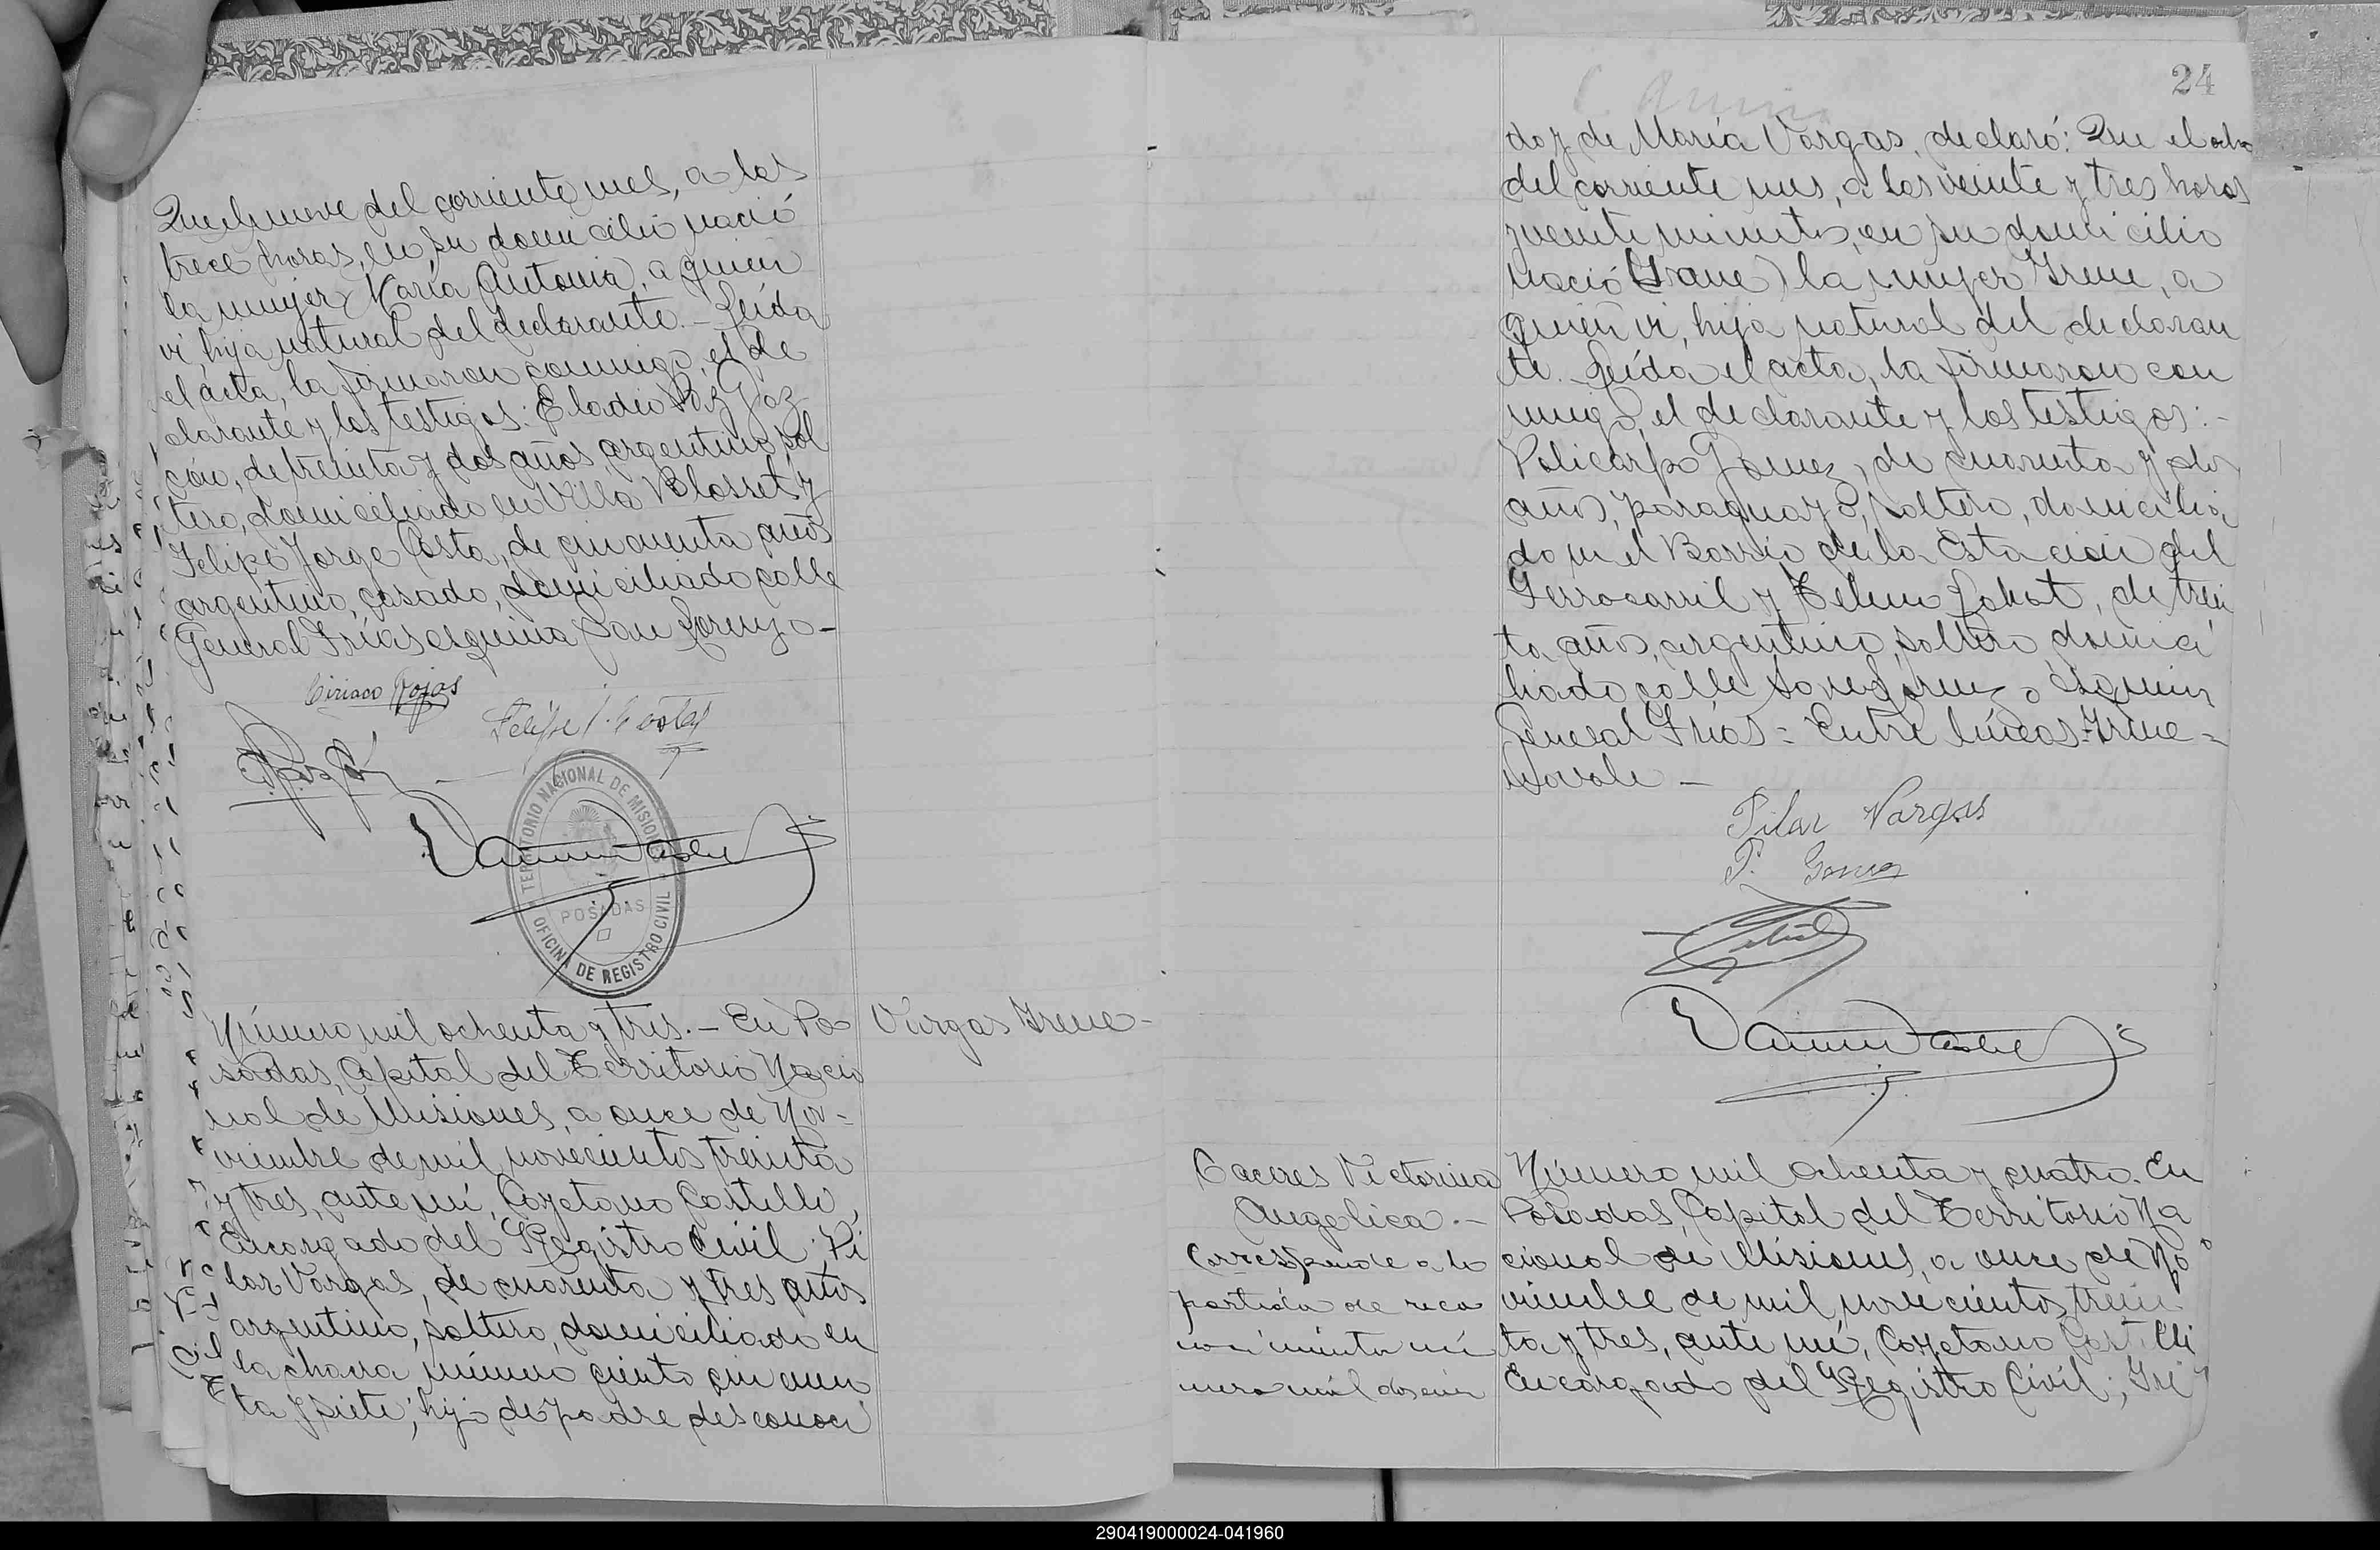 Que el nueve del corriente mes, a las
trece horas, en su domicilio nació
la mujer María Antonia, a quien
vi hija natural del declarante. - Leída
el acta, la firmaron conmigo, el de
clarante y los testigos: Eladio Paz
de treinta y dos años, argentino, sol
tero, domiciliado en Villa Blosset y
Felipe Jorge Costa, de cincuenta años
argentino, casado, domiciliado calle
General Frías esquina San Lorenzo -
Ciriaco Rojas
Felipe J. Costa
TERRITORIO NACIONAL DE MISIONES
POSADAS
OFICINA DE REGISTRO CIVIL
Número mil ochenta y tres. - En Po
sadas, Capital del Territorio Nacio
nal de Misiones, a once de No-
viembre de mil novecientos treinta
y tres, ante mí, Cayetano Castelli,
Encargado del Registro Civil; Pi
lar Vargas, de cuarenta y tres años
argentino, soltero, domiciliado en
la chacra número ciento cincuen
ta y siete; hijo de padre desconoci
Vargas Irene -
24
do y de María Vargas, declaró: Que el ocho
del corriente mes, a las veinte y tres horas
y veinte minutos, en su domicilio
nació (Irene) la mujer Irene, a
quien vi, hija natural del declaran
te. - Leída el acta, la firmaron con
migo, el declarante y los testigos: -
Policarpo Gomez, de cuarenta y dos
años, paraguayo, soltero, domicilia
do en el Barrio de la Estacion del
Ferrocarril y Telmo de trein
ta años, argentino, soltero, domici
liado calle San Lorenzo esquina
General Frías = Entre líneas: Irene =
no vale -
Pilar Vargas
P. Gomez
Caceres Victorina
Angelica. -
Corresponde a la
partida de reco
nocimiento nú
mero mil doscien
Número mil ochenta y cuatro. En
Posadas, Capital del Territorio Na
cional de Misiones, a once de No
viembre de mil novecientos trein
ta y tres, ante mí, Cayetano Castelli
Encargado del Registro Civil;
290419000024-041960